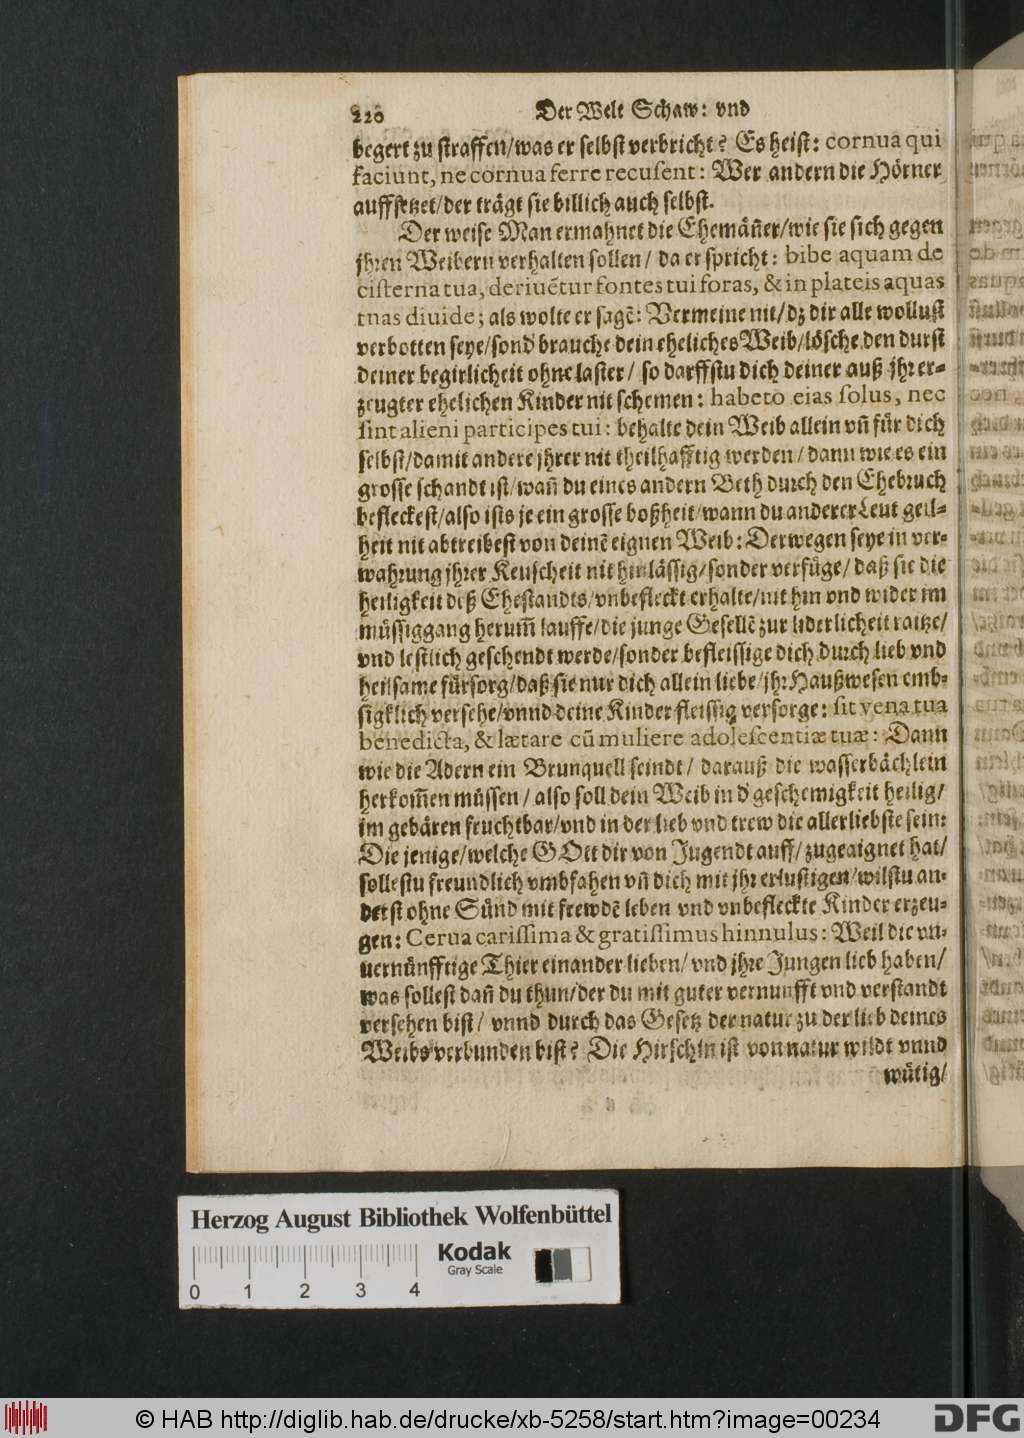 220 Der Welt Schaw: vnd
begert zu straffen/was er selbst verbricht? Es heist: cornua qui
faciunt, ne cornua ferre recusent: Wer andern die Hörner
auffsetzet/der trägt sie billich auch selbst.
Der weise Man ermahnet die Ehemäñer/wie sie sich gegen
jhren Weibern verhalten sollen/ da er spricht: bibe aquam de
cisterna tua, deriuẽtur fontes tui foras, & in plateis aquas
tuas diuide; als wolte er sagẽ: Vermeine nit/dz dir alle wollust
verbotten seye/sond brauche dein eheliches Weib/lösche den durst
deiner begirlicheit ohne laster/ so darffstu dich deiner auß jhr er-
zeugter ehelichen Kinder nit schemen: habeto eias solus, nec
sint alieni participes tui: behalte dein Weib allein vñ für dich
selbst/damit andere jhrer nit theilhafftig werden/dann wie es ein
grosse schandt ist/wañ du eines andern Beth durch den Ehebruch
befleckest/also ists je ein grosse boßheit/wann du anderer Leut geil-
heit nit abtreibest von deinẽ eignen Weib: Derwegen seye in ver-
wahrung jhrer Keuscheit nit hinlässig/sonder verfüge/daß sie die
heiligkeit deß Ehestandts/vnbefleckt erhalte/nit hin vnd wider im
müssiggang herum̃ lauffe/die junge Gesellẽ zur liderlicheit raitze/
vnd lestlich geschendt werde/sonder befleissige dich durch lieb vnd
heilsame fürsorg/daß sie nur dich allein liebe/jhr Haußwesen emb-
sigklich versehe/vnnd deine Kinder fleissig versorge: sit vena tua
benedicta, & lætare cũ muliere adolescentiæ tuæ: Dann
wie die Adern ein Brunquell seindt/ darauß die wasserbächlein
herkom̃en müssen/also soll dein Weib in d geschemigkeit heilig/
im gebären fruchtbar/vnd in der lieb vnd trew die allerliebste sein:
Die jenige/welche GOtt dir von Jugendt auff/zugeaignet hat/
sollestu freundlich vmbfahen vñ dich mit jhr erlustigen/wilstu an-
derst ohne Sünd mit frewdẽ leben vnd vnbefleckte Kinder erzeu-
gen: Cerua carissima & gratissimus hinnulus: Weil die vn-
uernünfftige Thier einander lieben/ vnd jhre Jungen lieb haben/
was sollest dañ du thun/der du mit guter vernunfft vnd verstandt
versehen bist/ vnnd durch das Gesetz der natur zu der lieb deines
Weibs verbunden bist? Die Hirschin ist von natur wildt vnnd
wütig/
Herzog August Bibliothek Wolfenbüttel
Kodak
Gray Scale
0 1 2 3 4
© HAB http://diglib.hab.de/drucke/xb-5258/start.htm?image=00234
DFG